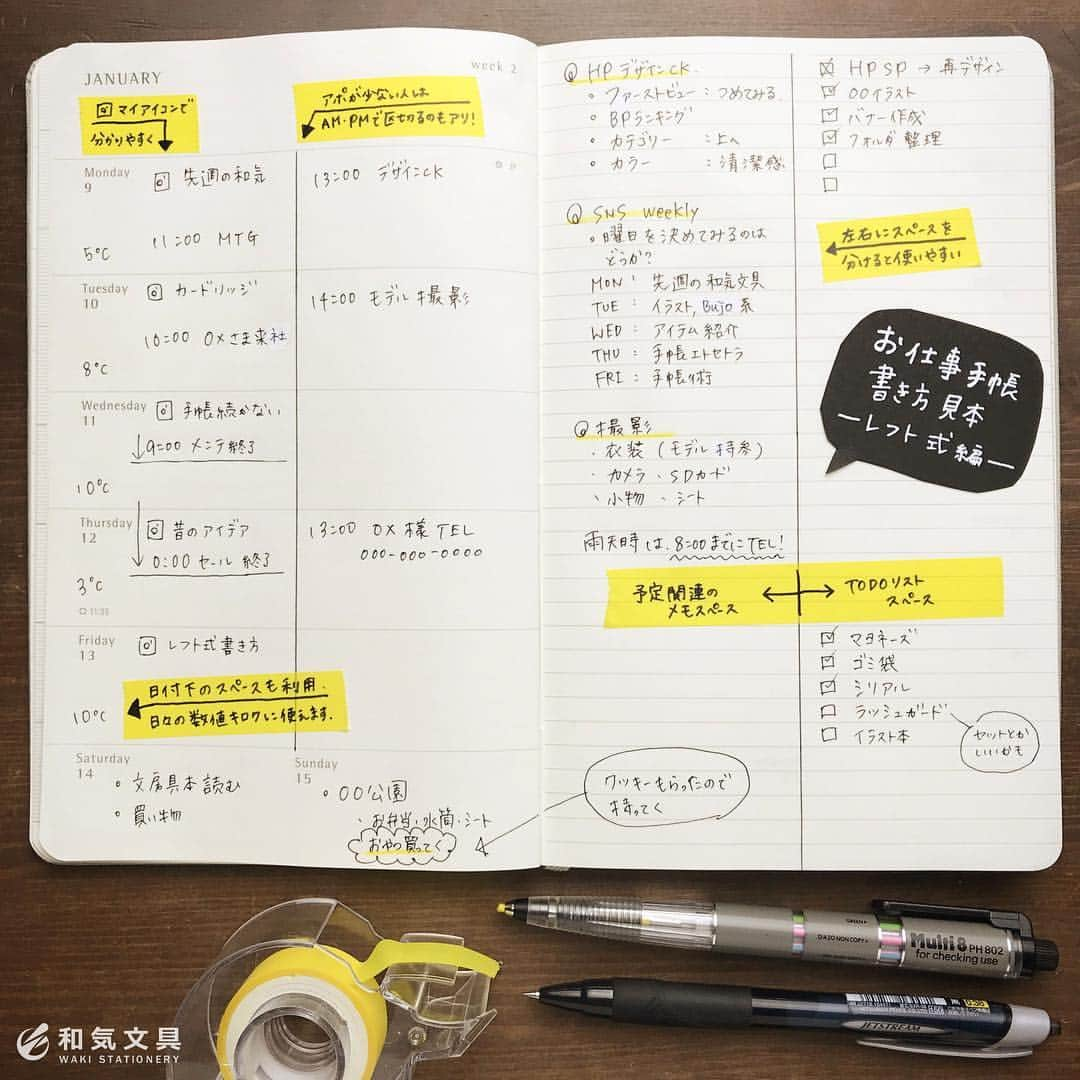 JANUARY
week 2
マイアイコンで
分かりやすく
アポが少ない人は
AM・PMで区切るのもアリ!
Monday
9
先週の和気
11:00 MTG
5°C
13:00 デザインCK
Tuesday
10
カードリッジ
10:00 〇×さま来社
8°C
14:00 モデル撮影
Wednesday
11
手帳続かない
9:00 メンテ終了
10°C
Thursday
12
昔のアイデア
0:00 セール終了
3°C
11:35
13:00 〇×様TEL
000-000-0000
Friday
13
レフト式書き方
10°C
日付下のスペースも利用.
日々の数値キロクに使えます.
Saturday
14
・文房具本読む
・買い物
Sunday
15
・〇〇公園
・お弁当・水筒・シート
おやつ買ってく
HPデザインCK.
・ファーストビュー:つめてみる.
・BPランキング
・カテゴリー :上へ
・カラー :清潔感
SNS weekly
・曜日を決めてみるのは
どうか?
MON: 先週の和気文具
TUE: イラスト,Bujo系
WED: アイテム紹介
THU: 手帳エトセトラ
FRI: 手帳術
撮影
・衣装(モデル持参)
・カメラ、SDカード
・小物、シート
雨天時は、8:00までにTEL!
予定関連の
メモスペース
クッキーもらったので
持ってく
☒ HP SP → 再デザイン
☑ 〇〇イラスト
☑ バナー作成
☑ フォルダ整理
☐
☐
左右にスペースを
分けると使いやすい
お仕事手帳
書き方見本
―レフト式編―
TODOリスト
スペース
☑ マヨネーズ
☑ ゴミ袋
☑ シリアル
☐ ラッシュガード
☐ イラスト本
セットとか
いいかも
GREEN
DAZO NON COPY
Multi 8 PH 802
for checking use
JETSTREAM
和気文具
WAKI STATIONERY